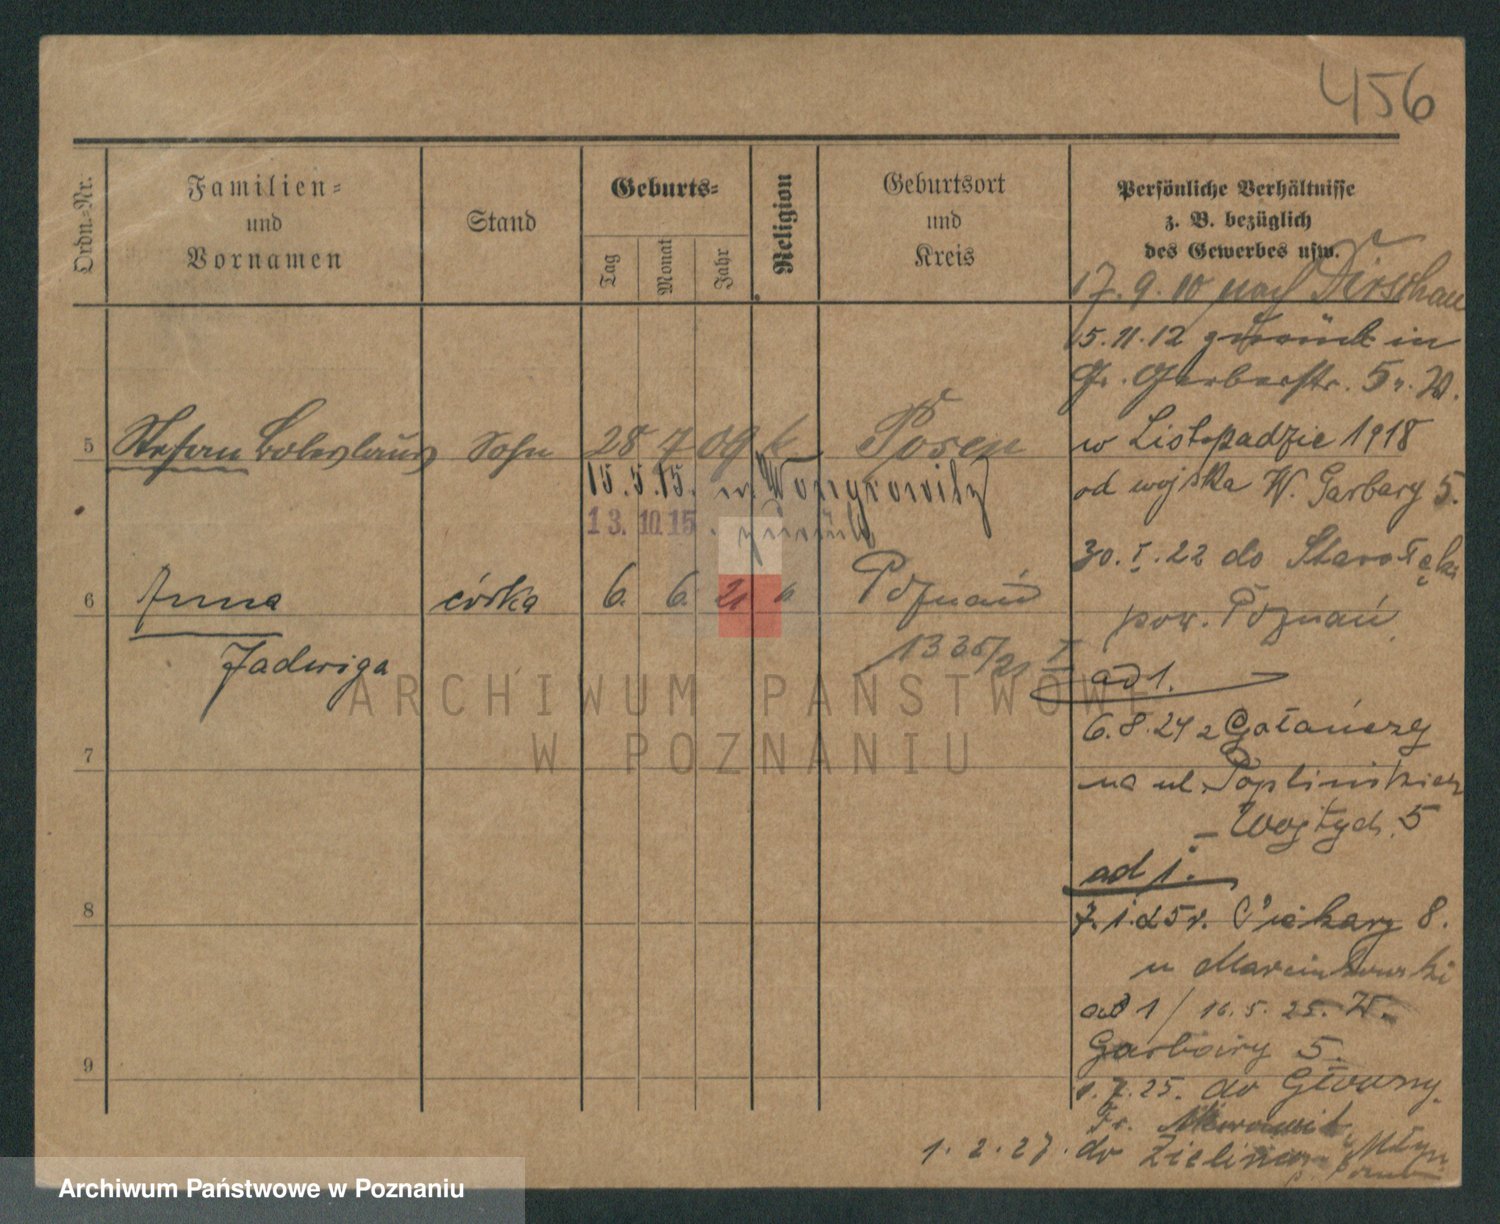 456
Ordn.-Nr.
Familien-
und
Vornamen
Stand
Geburts-
Tag
Monat
Jahr
Religion
Geburtsort
und
Kreis
Persönliche Verhältnisse
z. B. bezüglich
des Gewerbes usw.
17.9.10 nach Dirschau
15.11.12 zurück in
Gr. Gerberstr. 5
w Listopadzie 1918
od wojska W. Garbary 5.
30.I.22 do Starołęka
pow. Poznań
ad 1.
6.8.24 z Gołańczy
na ul. Poplińskich
Wozłych. 5
ad 1.
7.1.25 r. Piekary 8.
u Marcinkowski
ad 1/ 16.5.25. W.
Garbary 5.
1.7.25. do Główny.
1.2.27. do
5 Stefan Boleslaus Sohn 28 7 09 k Posen
15.5.15. n. Wongrowitz
13.10.15. zurück
6 Anna córka 6. 6. 21 k Poznań
Jadwiga
1335/21 I
7
8
9
ARCHIWUM PAŃSTWOWE
W POZNANIU
Archiwum Państwowe w Poznaniu